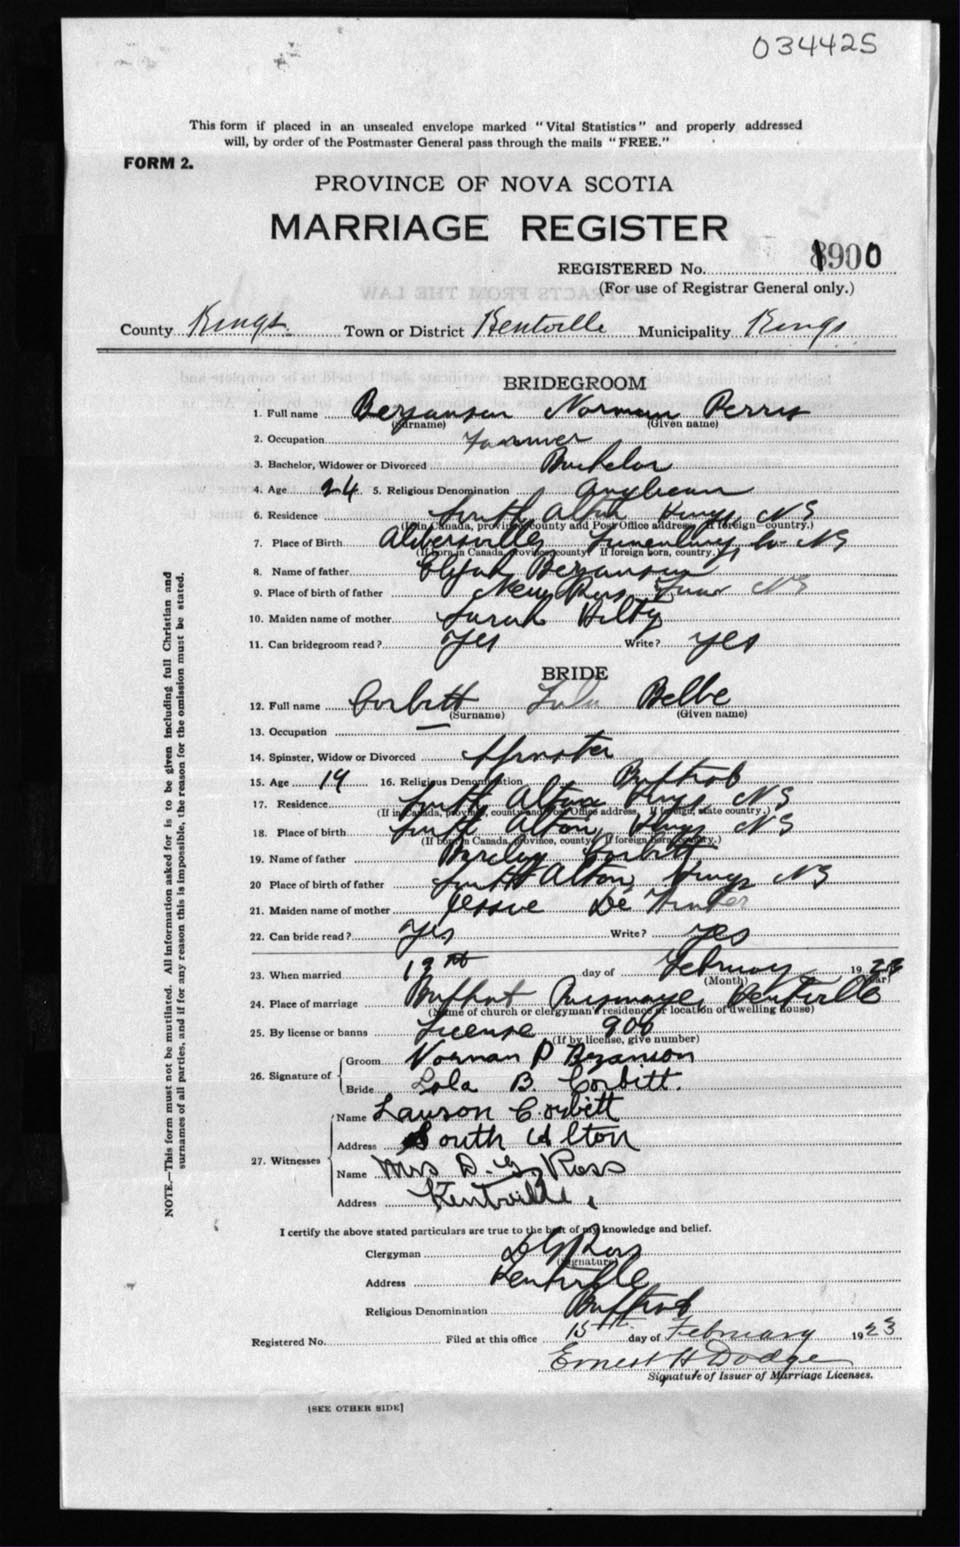 034425
This form if placed in an unsealed envelope marked "Vital Statistics" and properly addressed
will, by order of the Postmaster General pass through the mails "FREE."
FORM 2.
PROVINCE OF NOVA SCOTIA
MARRIAGE REGISTER
REGISTERED No. 1900
(For use of Registrar General only.)
County Kings Town or District Kentville Municipality Kings
BRIDEGROOM
1. Full name Bezanson Norman Perry
(Surname) (Given name)
2. Occupation Farmer
3. Bachelor, Widower or Divorced Bachelor
4. Age 24 5. Religious Denomination Anglican
6. Residence South Alton Kings NS
(If in Canada, province, county and Post Office address. If foreign—country.)
7. Place of Birth Lunenburg Co NS
(If born in Canada, province, county. If foreign born, country.)
8. Name of father Elijah Bezanson
9. Place of birth of father New Ross Lun NS
10. Maiden name of mother Sarah Hilty
11. Can bridegroom read? Yes Write? yes
BRIDE
12. Full name Corbitt Lola Belle
(Surname) (Given name)
13. Occupation —
14. Spinster, Widow or Divorced Spinster
15. Age 19 16. Religious Denomination Baptist
17. Residence South Alton Kings NS
(If in Canada, province, county and Post Office address. If foreign, state country.)
18. Place of birth South Alton, Kings NS
(If born in Canada, province, county. If foreign born, country.)
19. Name of father Corbitt
20 Place of birth of father South Alton, Kings NS
21. Maiden name of mother Jessie De
22. Can bride read? Yes Write? yes
23. When married day of February 1923
(Month) (Year)
24. Place of marriage Baptist Parsonage, Kentville
(Name of church or clergyman's residence or location of dwelling house)
25. By license or banns License 900
(If by license, give number)
26. Signature of
Groom Norman P Bezanson
Bride Lola B. Corbitt.
27. Witnesses
Name Lawson Corbitt
Address South Alton
Name Mrs D. G. Ross
Address Kentville.
I certify the above stated particulars are true to the best of my knowledge and belief.
Clergyman D G Ross
(Signature)
Address Kentville
Religious Denomination Baptist
Registered No. Filed at this office 15th day of February 1923
Ernest H Dodge
Signature of Issuer of Marriage Licenses.
[SEE OTHER SIDE]
NOTE.—This form must not be mutilated. All information asked for is to be given including full Christian and
surnames of all parties, and if for any reason this is impossible, the reason for the omission must be stated.